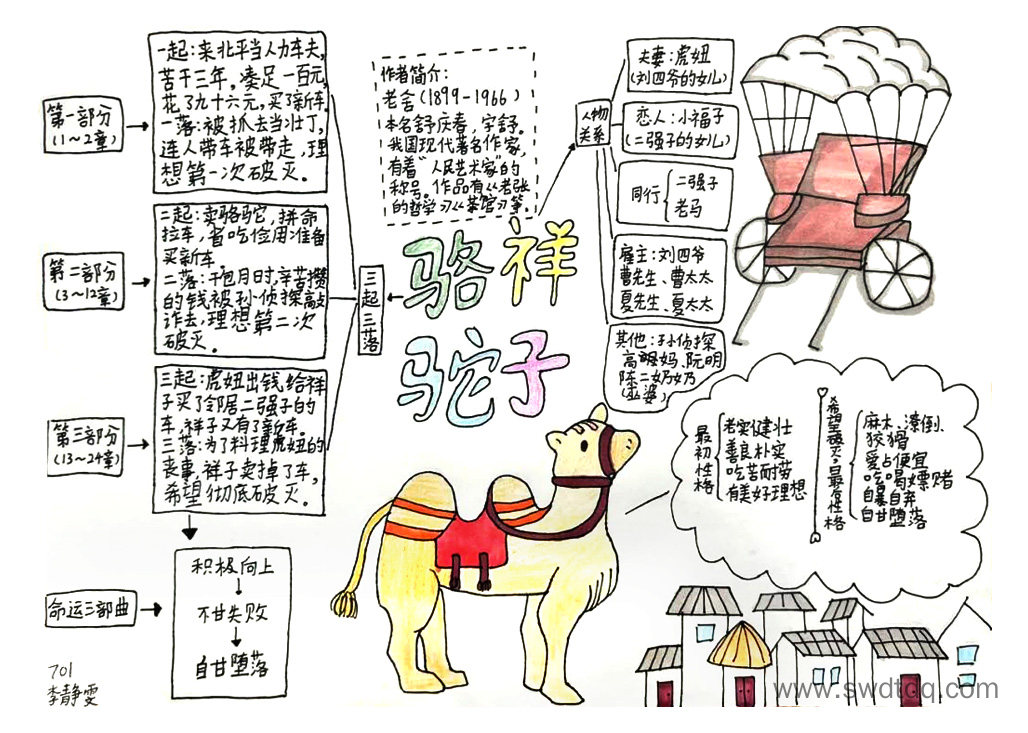 第一部分
(1~2章)
一起：来北平当人力车夫，
苦干三年，凑足一百元，
花了九十六元，买了新车。
一落：被抓去当壮丁，
连人带车被带走，理
想第一次破灭。
第二部分
(3~12章)
二起：卖骆驼，拼命
拉车，省吃俭用准备
买新车。
二落：干包月时，辛苦攒
的钱被孙侦探敲
诈去，理想第二次
破灭。
第三部分
(13~24章)
三起：虎妞出钱给祥
子买了邻居二强子的
车，祥子又有了新车。
三落：为了料理虎妞的
丧事，祥子卖掉了车，
希望彻底破灭。
命运三部曲
积极向上
不甘失败
自甘堕落
三起三落
作者简介：
老舍(1899-1966)
本名舒庆春，字舒。
我国现代著名作家，
有着“人民艺术家”的
称号。作品有《老张
的哲学》《茶馆》等。
骆祥
驼子
人物
关系
夫妻：虎妞
(刘四爷的女儿)
恋人：小福子
(二强子的女儿)
同行
二强子
老马
雇主：刘四爷
曹先生、曹太太
夏先生、夏太太
其他：孙侦探
高妈、阮明
陈二奶奶
(巫婆)
最初性格
老实健壮
善良朴实
吃苦耐劳
有美好理想
希望破灭，最后性格
麻木、潦倒、
狡猾
爱占便宜
吃喝嫖赌
自暴自弃
自甘堕落
701
李静雯
www.swdtqq.com